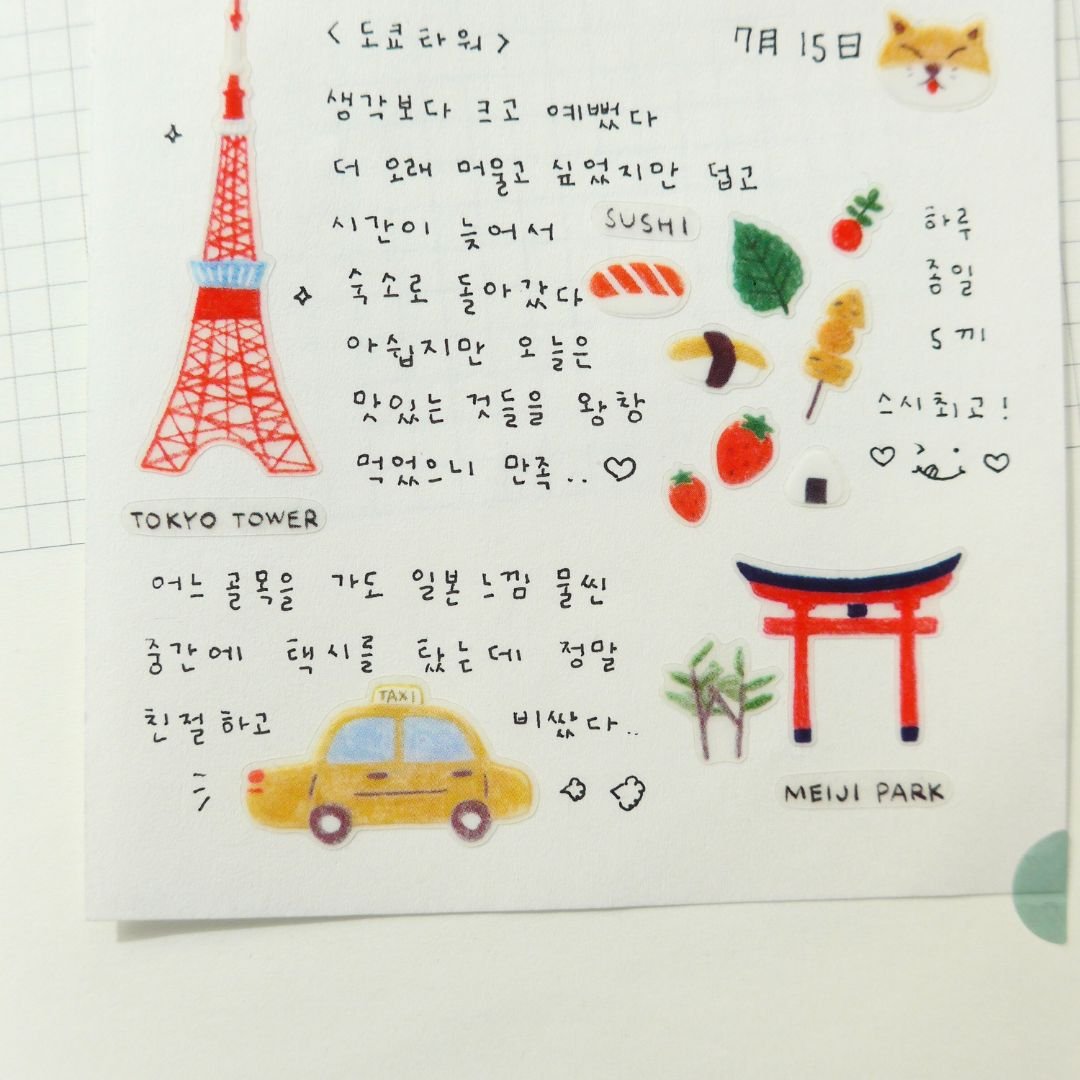 <도쿄타워>
7月 15日
생각보다 크고 예뻤다
더 오래 머물고 싶었지만 덥고
시간이 늦어서
숙소로 돌아갔다
아쉽지만 오늘은
맛있는 것들을 왕창
먹었으니 만족..
SUSHI
하루
종일
5끼
스시최고!
TOKYO TOWER
어느 골목을 가도 일본느낌 물씬
중간에 택시를 탔는데 정말
친절하고 비쌌다..
TAXI
MEIJI PARK